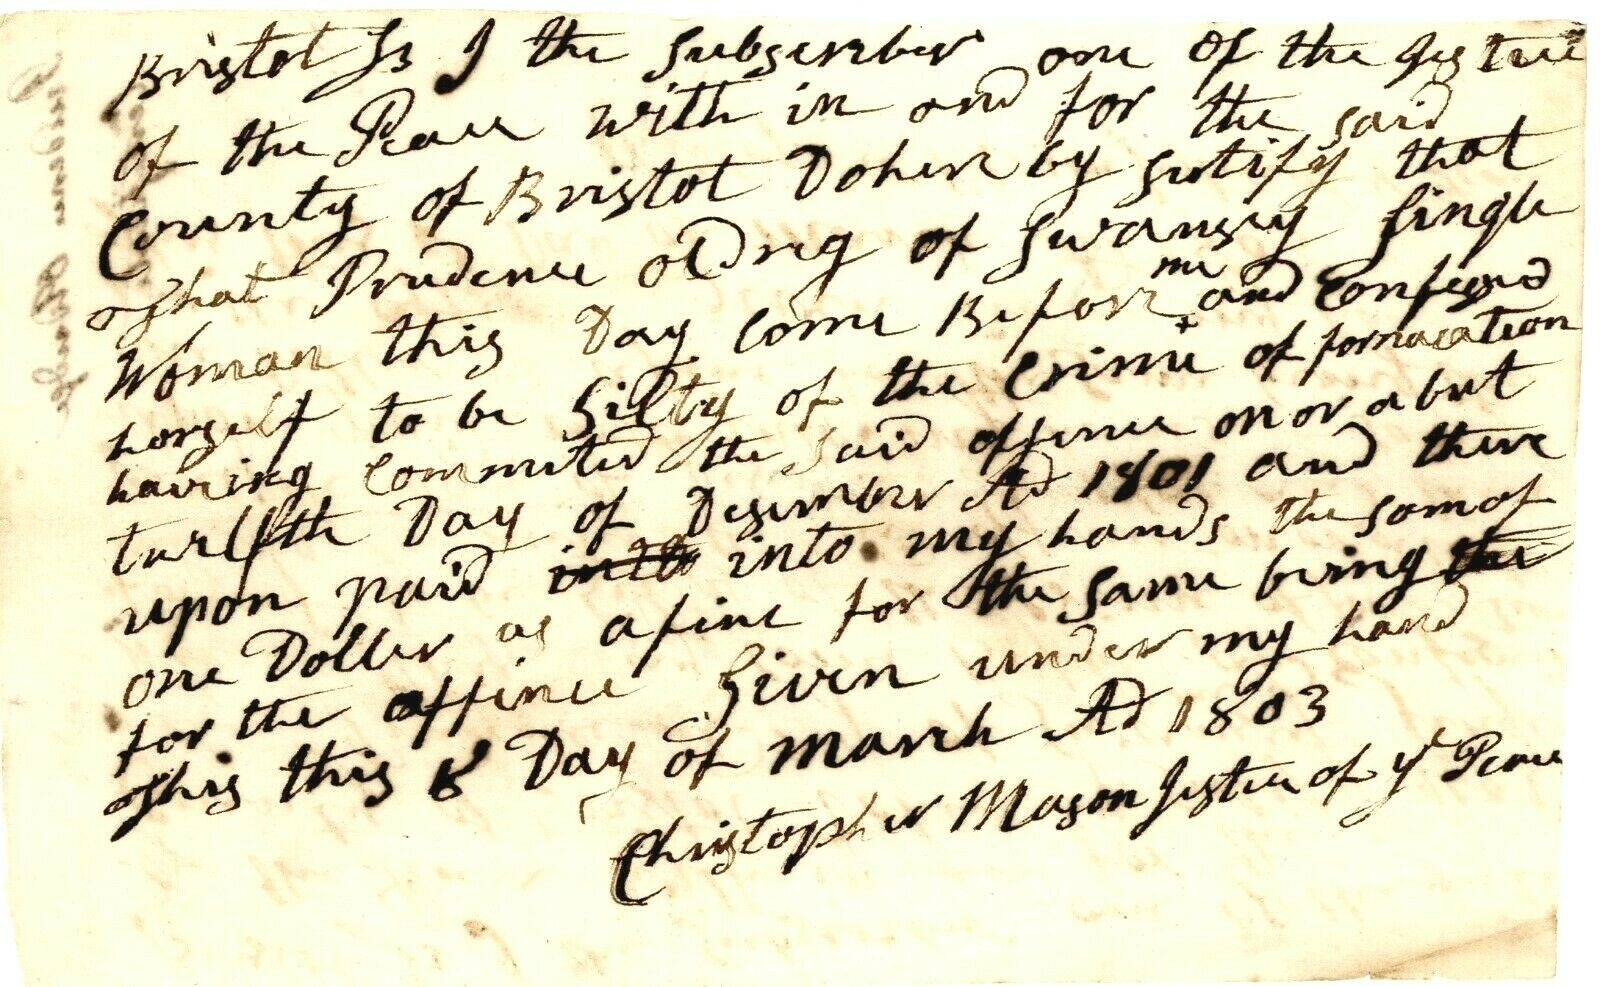 Bristol Ss I the Subscriber one of the Justice
of the Peace with in and for the said
County of Bristol Do here by Sertify that
that Prudence of Swansey Single
Woman this Day Come Before me and Confessed
horself to be Gilty of the Crime of fornacation
haiving Commited the Said offence on or abut
twelfth Day of Desember AD 1801 and there
upon paid into into my hands the som of
one Doller as a fine for the same being the
for the offince Given under my hand
this this 8 Day of March AD 1803
Christopher Mason Jestice of ye Peace